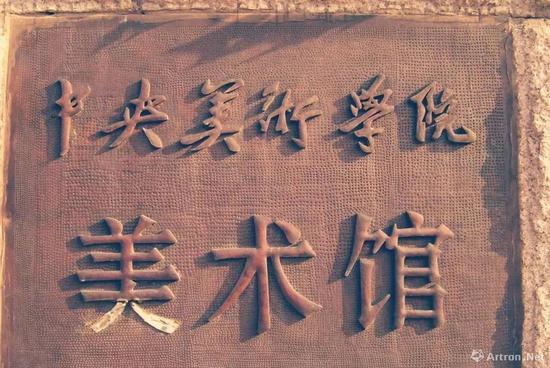 中央美術學院
美术馆
Artron.Net